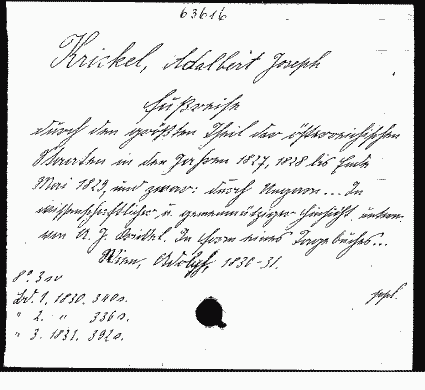 63616
Krickel, Adalbert Joseph
Fußreise
durch den größten Theil der österreichischen
Staaten in den Jahren 1827, 1828 bis Ende
Mai 1829, und zwar: durch Ungarn... In
wissenschaftlicher u. gemeinnütziger Hinsicht untern.
von A. J. Krickel. In Form eines Tagebuches...
Wien, Adolph, 1830-31.
8° 3
Bd. 1. 1830. 340 s.
" 2. " 336 s.
" 3. 1831. 392 s.